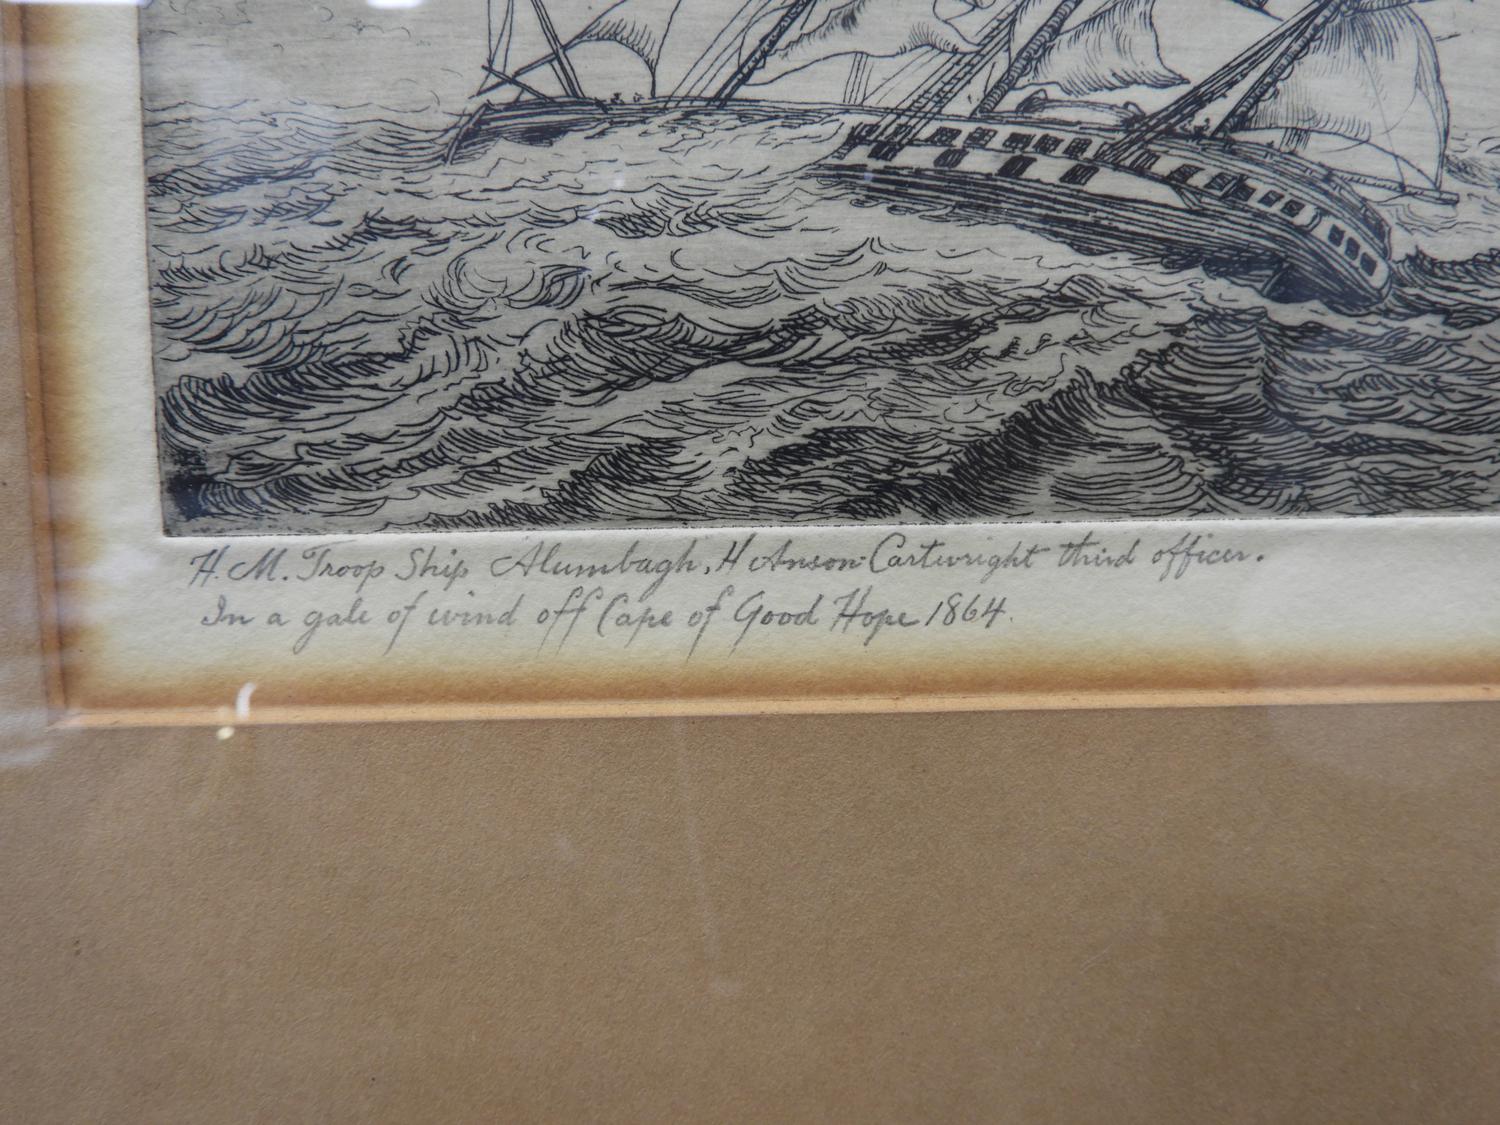 H.M. Troop Ship Alumbagh, H Anson-Cartwright third officer.
In a gale of wind off Cape of Good Hope 1864.